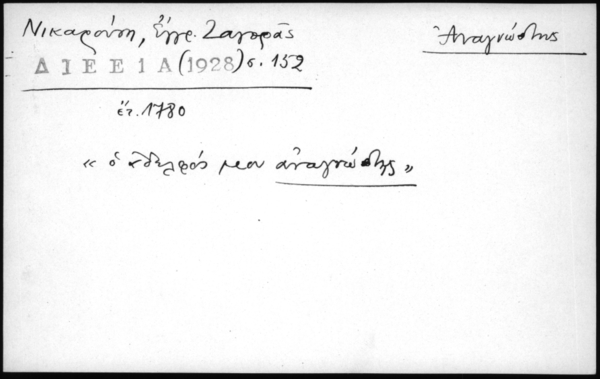 Νικαρούση, Ἔγγρ. Ζαγορᾶς
Ἀναγνώστης
Δ Ι Ε Ε 1 Α (1928) σ. 152
ἔτ. 1780
« ὁ ἀδελφός μου ἀναγνώστης »